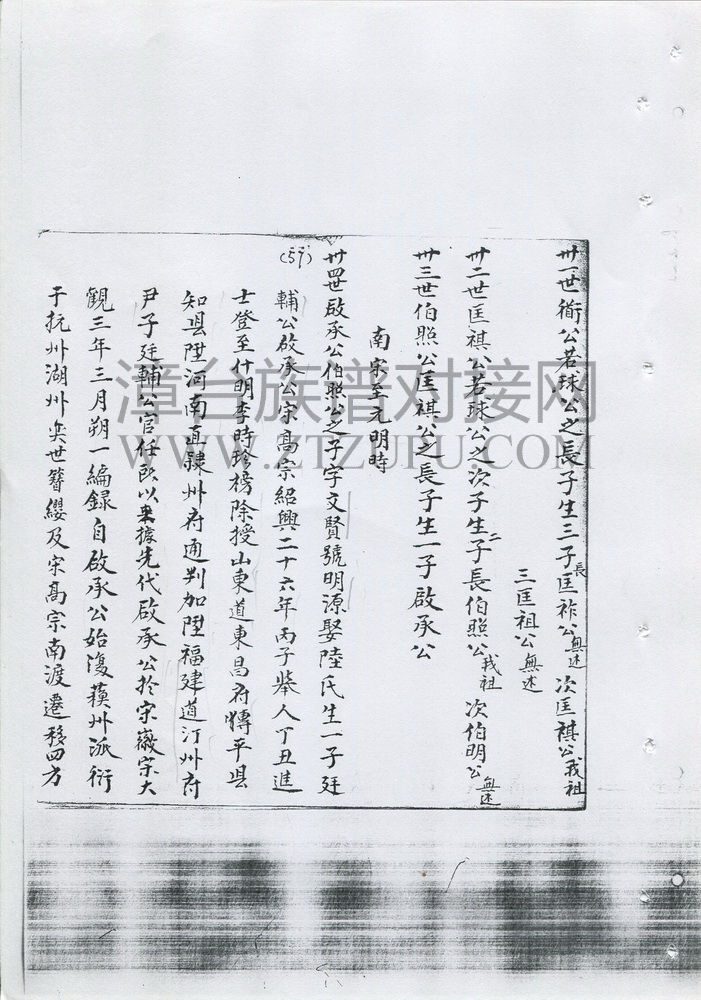 卅一世衛公若球公之長子生三子長匡祚公無述次匡祺公我祖
三匡祖公無述
卅二世匡祺公若球公之次子生二子長伯照公我祖次伯明公無述
卅三世伯照公匡祺公之長子生一子啟承公
南宋至元明時
卅四世啟承公伯照公之子字文賢號明源娶陸氏生一子廷
(57)
輔公啟承公宋高宗紹興二十六年丙子舉人丁丑進
士登至什明李時珍榜除授山東道東昌府慱平县
知县陞河南直隸州府通判加陞福建道汀州府
尹子廷輔公官任既以來據先代啟承公於宋徽宗大
觀三年三月朔一編録自啟承公始復蘓州派衍
于抗州湖州奕世簪纓及宋高宗南渡遷移四方
漳台族谱对接网
WWW.ZTZUPU.COM